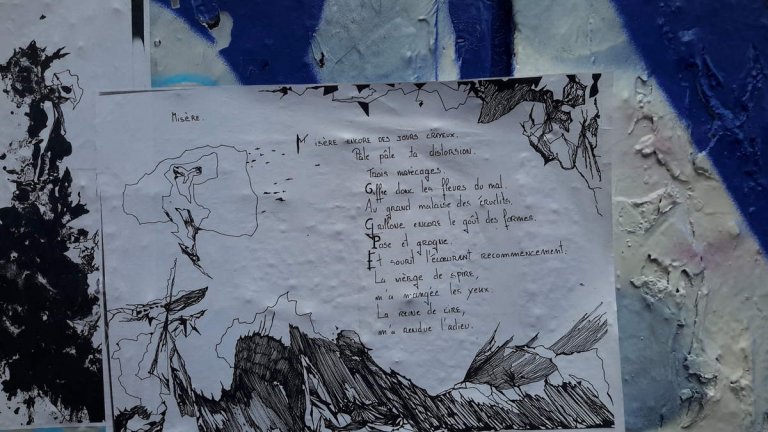 Misère.
Misère encore des jours crémeux.
Pâle pâle ta distorsion.
Trois marécages.
Giffle donc les fleurs du mal.
Au grand malaise des érudits,
Grillone encore le goût des formes.
Pose et grogne.
Et sourit l'écoeurant recommencement.
La mèrge de spire,
m'a mangée les yeux.
La reine de cire,
m'a rendue l'adieu.